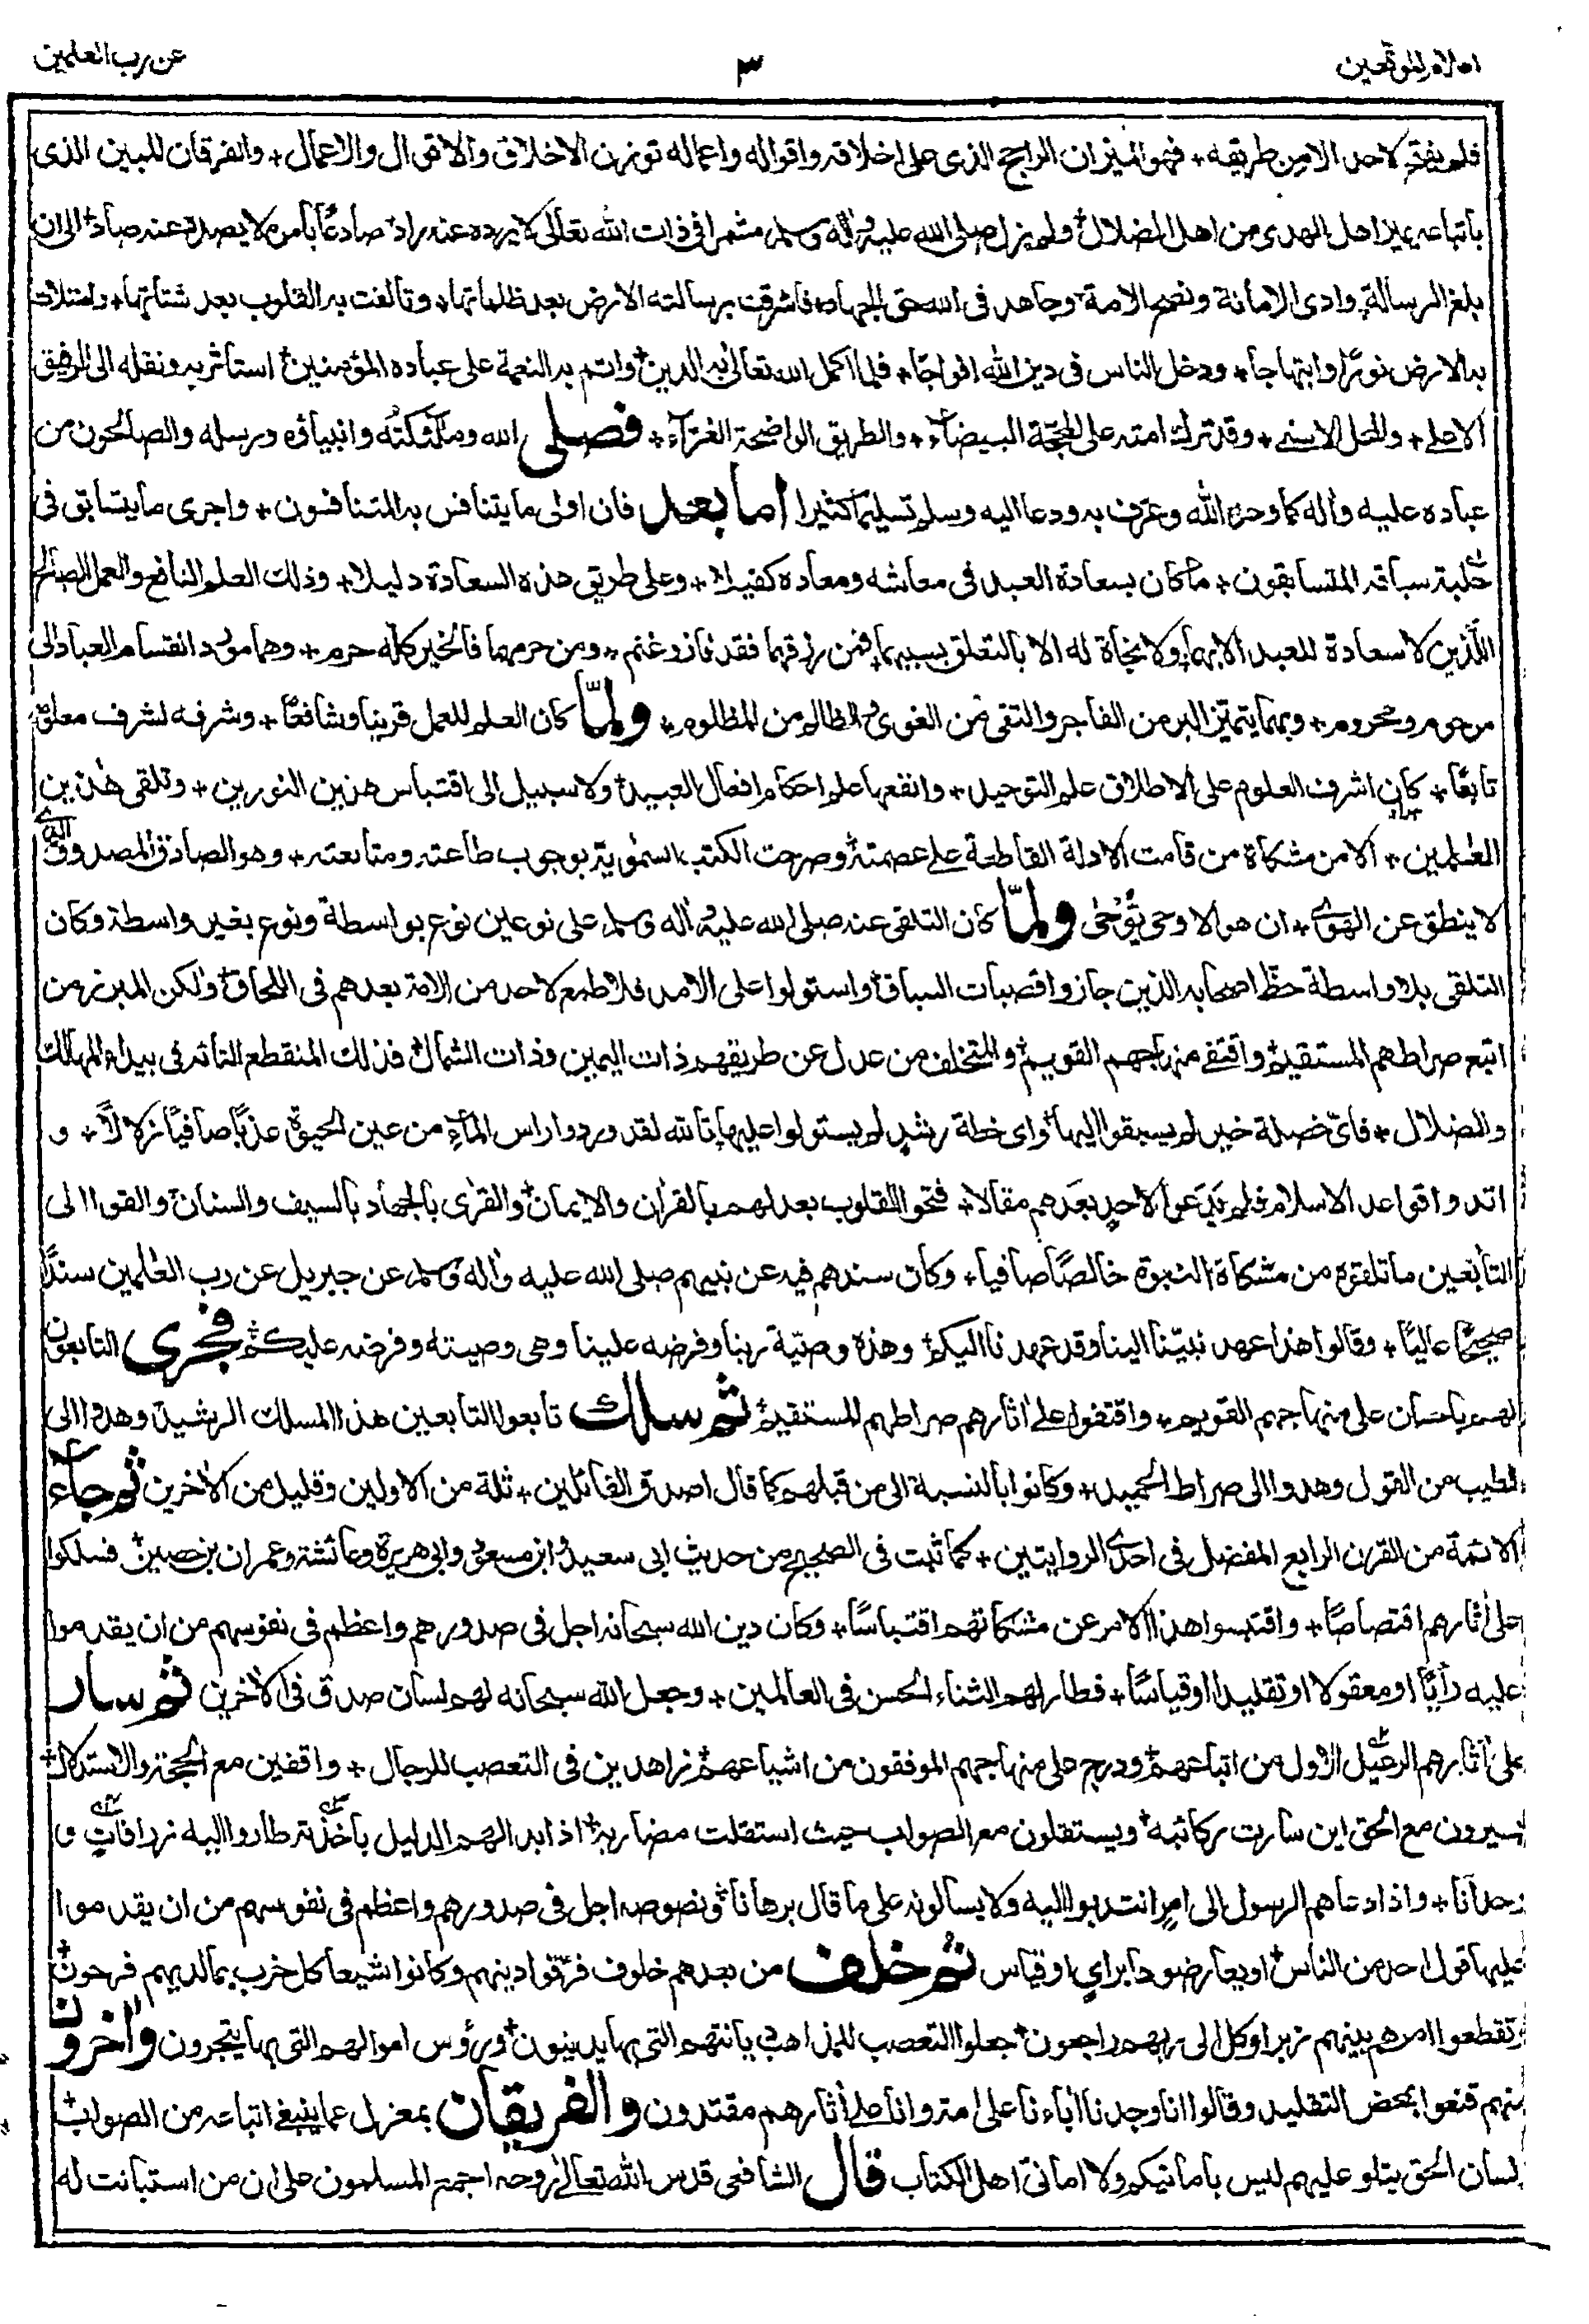 اعلام الموقعين
٣
عن رب العلمين
فلم يفتح لاحد الا من طريقه + فهو الميزان الراجح الذى على اخلاقه واقواله واعماله توزن الاخلاق والاقوال والاعمال + والفرقان المبين الذى
باتباعه يميز اهل الهدى من اهل الضلال + ولم يزل صلى الله عليه واله وسلم مشمرا فى ذات الله تعالى لا يرده عنه راد + صادعًا بامره لا يصده عنه صاد + الى ان
بلغ الرسالة وادى الامانة ونصح الامة + وجاهد فى الله حق الجهاد + فاشرقت برسالته الارض بعد ظلماتها + وتالفت به القلوب بعد شتاتها + وامتلات
به الارض نورًا وابتهاجا + ودخل الناس فى دين الله افواجًا + فلما اكمل الله تعالى به الدين + واتم به النعمة على عباده المؤمنين + استاثر به ونقله الى الرفيق
الاعلے + والمحل الاسنے + وقد ترك امته على المحجّة البيضآء + والطريق الواضحة الغرّآء + فصلى الله وملٰئكتُه وانبياؤه ورسله والصالحون من
عباده عليه واٰله كما وحد الله وعرّف به ودعا اليه وسلم تسليما كثيرا اما بعد فان اولى ما يتنافس به المتنافسون + واجرى ما يتسابق فى
حلبة سباقه المتسابقون + ما كان بسعادة العبد فى معاشه ومعاده كفيلا + وعلى طريق هذه السعادة دليلا + وذلك العلم النافع والعمل الصالح
اللّذين لا سعادة للعبد الا بهما + ولا نجاة له الا بالتعلق بسببهما + فمن رزقهما فقد فاز وغنم + ومن حرمهما فالخير كله حرم + وهما مورد انقسام العباد الى
مرحوم ومحروم + وبهما يتميز البر من الفاجر والتقى من الغوى والظالم من المظلوم + ولمّا كان العلم للعمل قرينا وشافعًا + وشرفه لشرف معلومه
تابعًا + كان اشرف العلوم على الاطلاق علم التوحيد + وانفعها علم احكام افعال العبيد + ولا سبيل الى اقتباس هذين النورين + وتلقى هٰذين
العلمين + الا من مشكاة من قامت الادلة القاطعة علے عصمته + وصرحت الكتب السموية بوجوب طاعته ومتابعته + وهو الصادق المصدوق الذى
لا ينطق عن الهوٰے + ان هو الا وحى يّوحٰى ولمّا كان التلقى عنه صلى الله عليه واله وسلم على نوعين نوع بواسطة ونوع بغير واسطة وكان
التلقى بلا واسطة حظّ اصحابه الذين حازوا قصبات السباق + واستولوا على الامد فلا طمع لاحد من الامة بعدهم فى اللحاق + ولكن المبرز من
اتبع صراطهم المستقيم + واقتفے منهاجهم القويم + والمتخلف من عدل عن طريقهم ذات اليمين وذات الشمال + فذلك المنقطع التائه فى بيداء المهالك
والضلال + فاىّ خصلة خير لم يسبقوا اليها + واى خطة رشدٍ لم يستولوا عليها + تالله لقد وردوا راس المآء من عين الحيوة عذبًا صافيًا زلالًا + و
اتدوا قواعد الاسلام فلم يَدَعوا لاحدٍ بعدهم مقالا + فتحوا القلوب بعدلهم بالقرآن والايمان + والقرى بالجهاد بالسيف والسنان + والقوا الى
التابعين ما تلقوه من مشكاة النبوة خالصًا صافيا + وكان سندهم فيه عن نبيهم صلى الله عليه واٰله وسلم عن جبريل عن رب العٰلمين سندًا
صحيحًا عاليًا + وقالوا هذا عهد نبيّنا الينا وقد عهدنا اليكم + وهذه وصيّة ربنا وفرضه علينا وهى وصيته وفرضه عليكم + فجرى التابعون
لهم باحسان على منهاجهم القويم + واقتفوا علے اٰثارهم صراطهم المستقيم + ثم سلك تابعوا التابعين هذا المسلك الرشيد + وهدوا الى
الطيب من القول وهدوا الى صراط الحميد + وكانوا بالنسبة الى من قبلهم كما قال اصدق القائلين + ثلة من الاولين وقليل من الاٰخرين ثم جآءَ
الائمة من القرن الرابع المفضل فى احدے الروايتين + كما ثبت فى الصحيح من حديث ابى سعيد وابن مسعود وابى هريرة وعائشة وعمران بن حصين + فسلكوا
على اٰثارهم اقتصاصًا + واقتبسوا هذا الامر عن مشكاتهم اقتباسًا + وكان دين الله سبحانه اجل فى صدورهم واعظم فى نفوسهم من ان يقدموا
عليه رأيًا او معقولا او تقليدا او قياسًا + فطار لهم الثناء الحسن فى العالمين + وجعل الله سبحانه لهم لسان صدق فى الاٰخرين ثم سار
على اٰثارهم الرعيل الاول من اتباعهم + ودرج على منهاجهم الموفقون من اشياعهم + زاهدين فى التعصب للرجال + واقفين مع الحجة والاستدلال +
يسيرون مع الحق اين سارت ركائبه + ويستقلون مع الصواب حيث استقلت مضاربه + اذا بدا لهم الدليل بأخذته طاروا اليه زرافات و
وحدانا + واذا دعاهم الرسول الى امرٍ انتدبوا اليه ولا يسألونه على ما قال برهانا + ونصوصه اجل فى صدورهم واعظم فى نفوسهم من ان يقدموا
عليها قول احد من الناس + او يعارضوها برأي او قياس ثم خلف من بعدهم خلوف فرّقوا دينهم وكانوا شيعا كل حزب بما لديهم فرحون +
وتقطعوا امرهم بينهم زبرا وكل الى ربهم راجعون + جعلوا التعصب للمذاهب ديانتهم التى بها يدينون + ورؤس اموالهم التى بها يتجرون واٰخرون
منهم قنعوا بمحض التقليد وقالوا انا وجدنا اٰباءنا على امة وانا علے اٰثارهم مقتدون والفريقان بمعزل عما ينبغے اتباعه من الصواب +
لسان الحق يتلو عليهم ليس بامانيكم ولا امانىّ اهل الكتاب قال الشافعى قدس الله تعالى روحه اجمع المسلمون على ان من استبانت له